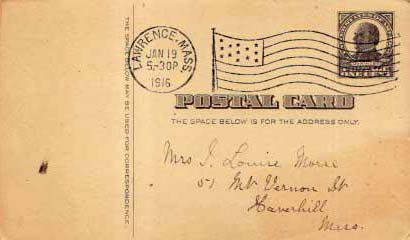 THE SPACE BELOW MAY BE USED FOR CORRESPONDENCE.
LAWRENCE, MASS.
JAN 19
5-30P
1916
ONE CENT
POSTAL CARD
THE SPACE BELOW IS FOR THE ADDRESS ONLY.
Mrs J. Louise Morse
51 Mt Vernon St
Haverhill
Mass.